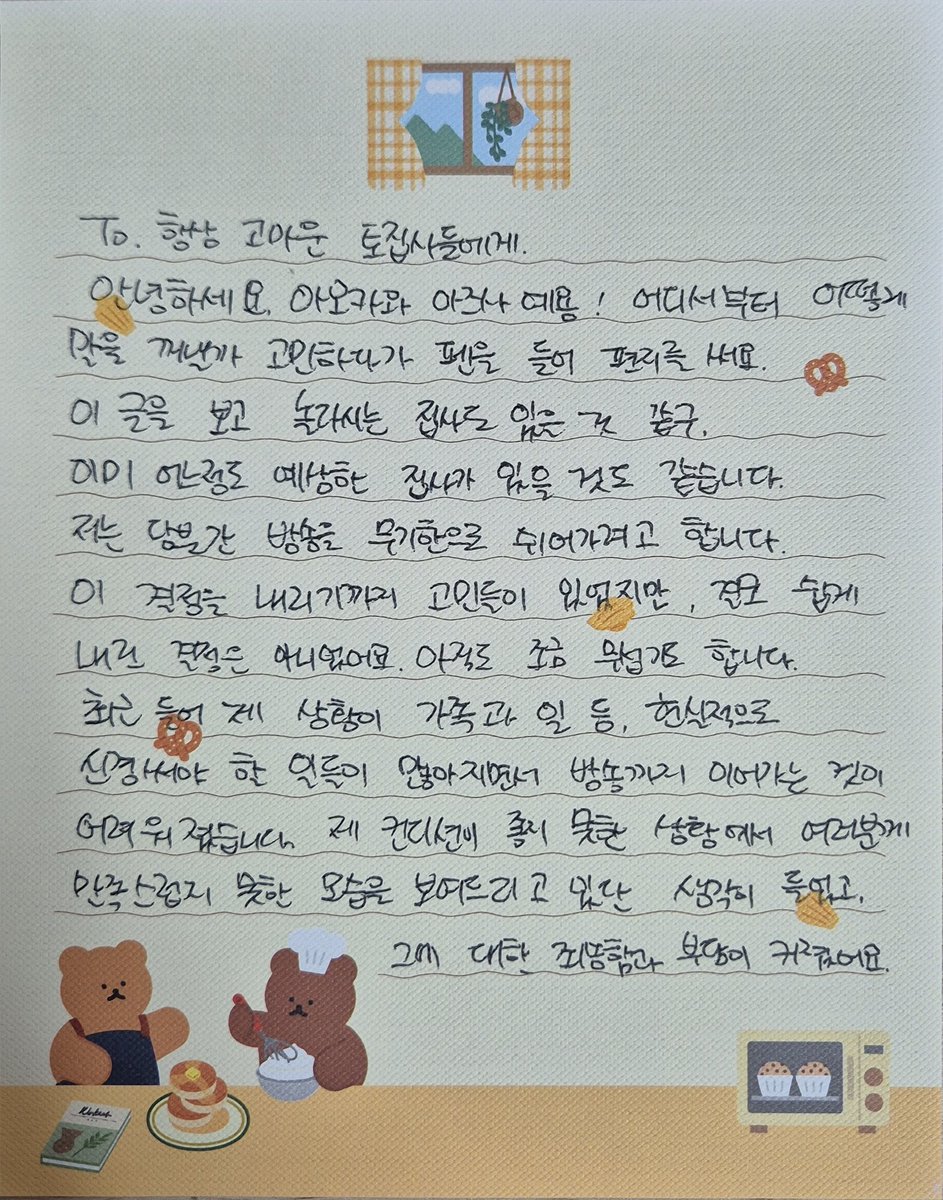 To. 항상 고마운 토집사들에게.
안녕하세요, 아오카와 아즈사예욤! 어디서부터 어떻게
말을 꺼낼까 고민하다가 펜을 들어 편지를 써요.
이 글을 보고 놀라시는 집사도 있을 것 같구,
이미 어느정도 예상한 집사가 있을 것도 같습니다.
저는 당분간 방송을 무기한으로 쉬어가려고 합니다.
이 결정을 내리기까지 고민들이 있었지만, 결코 쉽게
내린 결정은 아니었어요. 아직도 조금 무섭기도 합니다.
최근 들어 제 상황이 가족과 일 등, 현실적으로
신경써야 할 일들이 많아지면서 방송까지 이어가는 것이
어려워졌습니다. 제 컨디션이 좋지 못한 상황에서 여러분께
만족스럽지 못한 모습을 보여드리고 있단 생각이 들었고,
그에 대한 죄송함과 부담이 커졌어요.